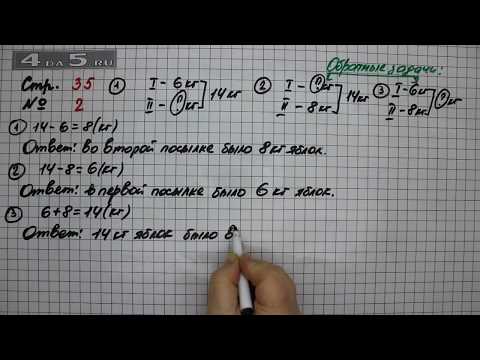 4 DA 5 .RU
Обратные задачи:
Стр. 35
№ 2
① I - 6 кг
II - ? кг
14 кг
② I - ? кг
II - 8 кг
14 кг
③ I - 6 кг
II - 8 кг
? кг
① 14 - 6 = 8 (кг)
Ответ: во второй посылке было 8 кг яблок.
② 14 - 8 = 6 (кг)
Ответ: в первой посылке было 6 кг яблок.
③ 6 + 8 = 14 (кг)
Ответ: 14 кг яблок было в